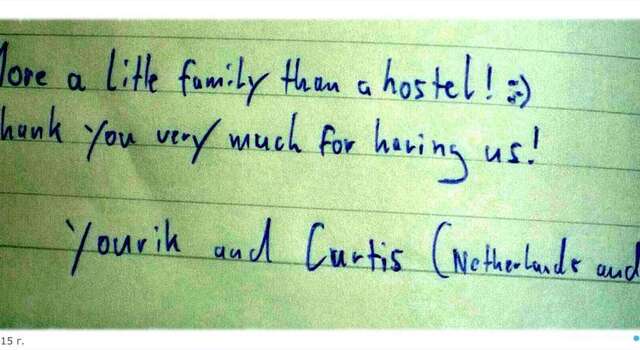 More a little family than a hostel! :-)
Thank you very much for having us!
Yourik and Curtis (Netherlands and
15 г.